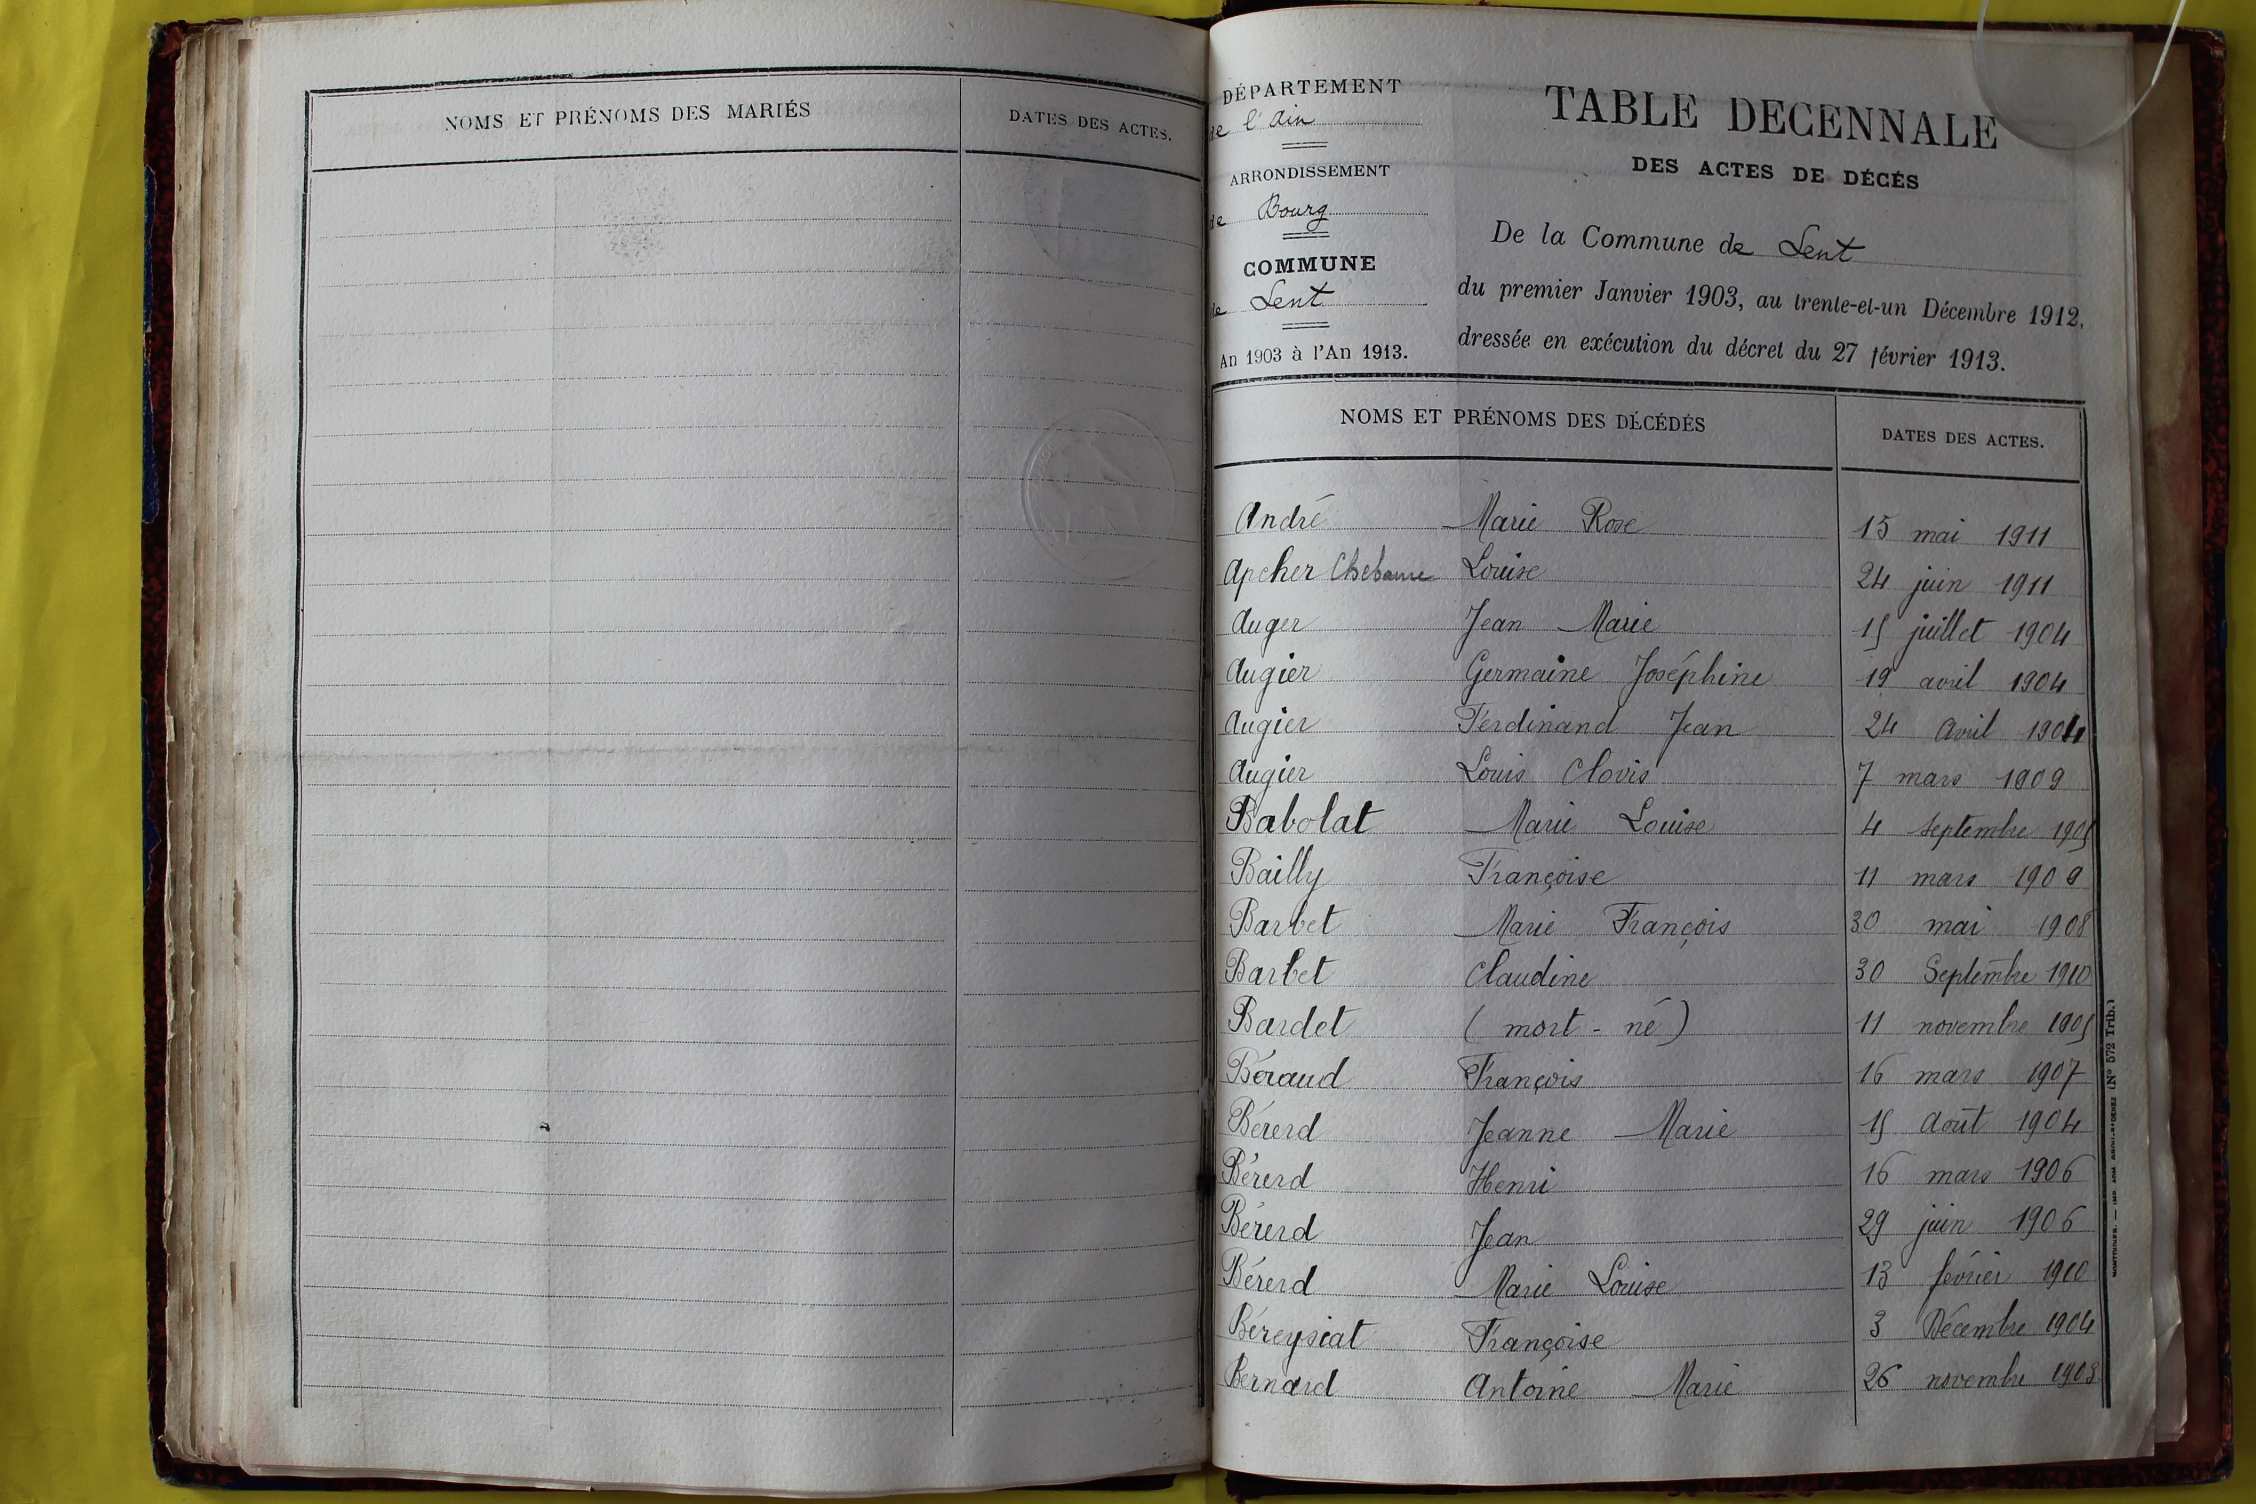 NOMS ET PRÉNOMS DES MARIÉS
DATES DES ACTES.
DÉPARTEMENT
de l'Ain
ARRONDISSEMENT
de Bourg
COMMUNE
de Lent
An 1903 à l'An 1913.
TABLE DECENNALE
DES ACTES DE DÉCÉS
De la Commune de Lent
du premier Janvier 1903, au trente-et-un Décembre 1912,
dressée en exécution du décret du 27 février 1913.
NOMS ET PRÉNOMS DES DÉCÉDÉS DATES DES ACTES.
André Marie Rose 15 mai 1911
Apcher Louise 24 juin 1911
Auger Jean Marie 15 juillet 1904
Augier Germaine Joséphine 19 avril 1904
Augier Ferdinand Jean 24 Avril 1904
Augier Louis Clovis 7 mars 1909
Babolat Marie Louise 4 Septembre 1905
Bailly Françoise 11 mars 1909
Barbet Marie François 30 mai 1908
Barbet Claudine 30 Septembre 1910
Bardet (mort-né) 11 novembre 1905
Béraud François 16 mars 1907
Bérerd Jeanne Marie 15 Août 1904
Bérerd Henri 16 mars 1906
Bérerd Jean 29 juin 1906
Bérerd Marie Louise 13 février 1910
Béreysiat Françoise 3 Décembre 1904
Bernard Antoine Marie 26 novembre 1903
(N° 572 Trib.)